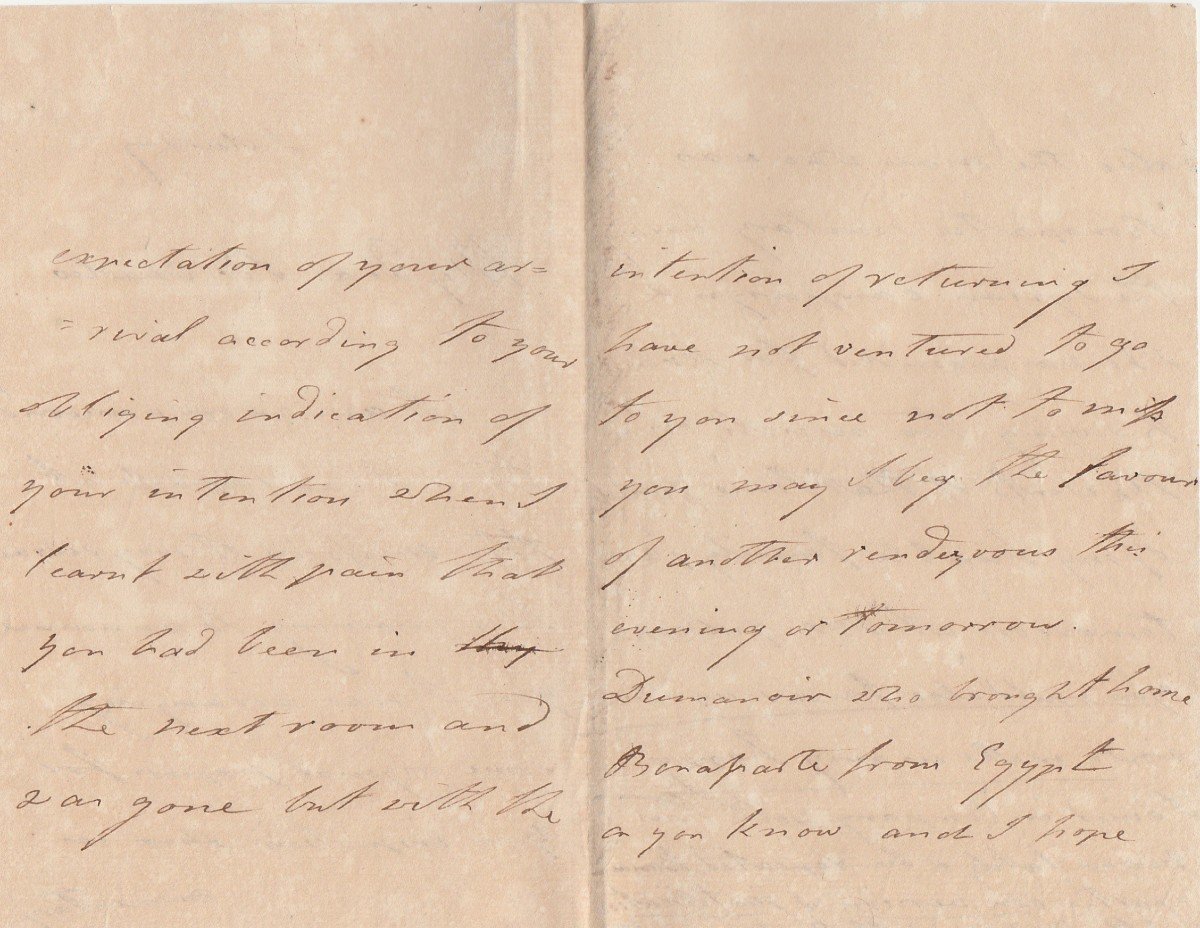 expectation of your ar=
=rival according to your
obliging indication of
your intention when I
learnt with pain that
you had been in thy
the next room and
was gone but with the
intention of returning I
have not ventured to go
to you since not to miss
you may I beg the favour
of another rendezvous this
evening or tomorrow.
Dumanoir who brought home
Bonaparte from Egypt
as you know and I hope